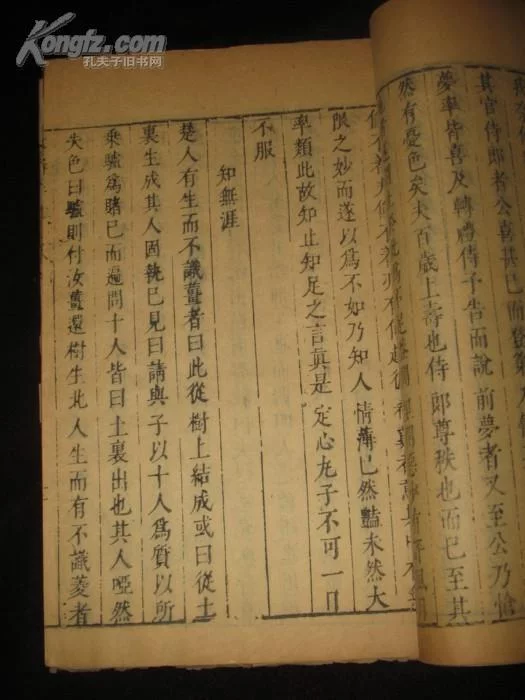 Kongfz.com
孔夫子旧书网
其官侍郎者公喜甚已而
夢率皆喜及轉禮侍子告而說前夢者又至公乃愴
然有憂色矣夫百歲上壽也侍郎尊秩也而已至其
限之妙而遂以爲不如乃知人情薄已然豔未然大
率類此故知止知足之言真是定心丸子不可一日
不服
知無涯
楚人有生而不識薑者曰此從樹上結成或曰從土
裏生成其人固執已見曰請與子以十人爲質以所
乘驢爲賭已而遍問十人皆曰土裏出也其人啞然
失色曰驢則付汝薑還樹生北人生而有不識菱者